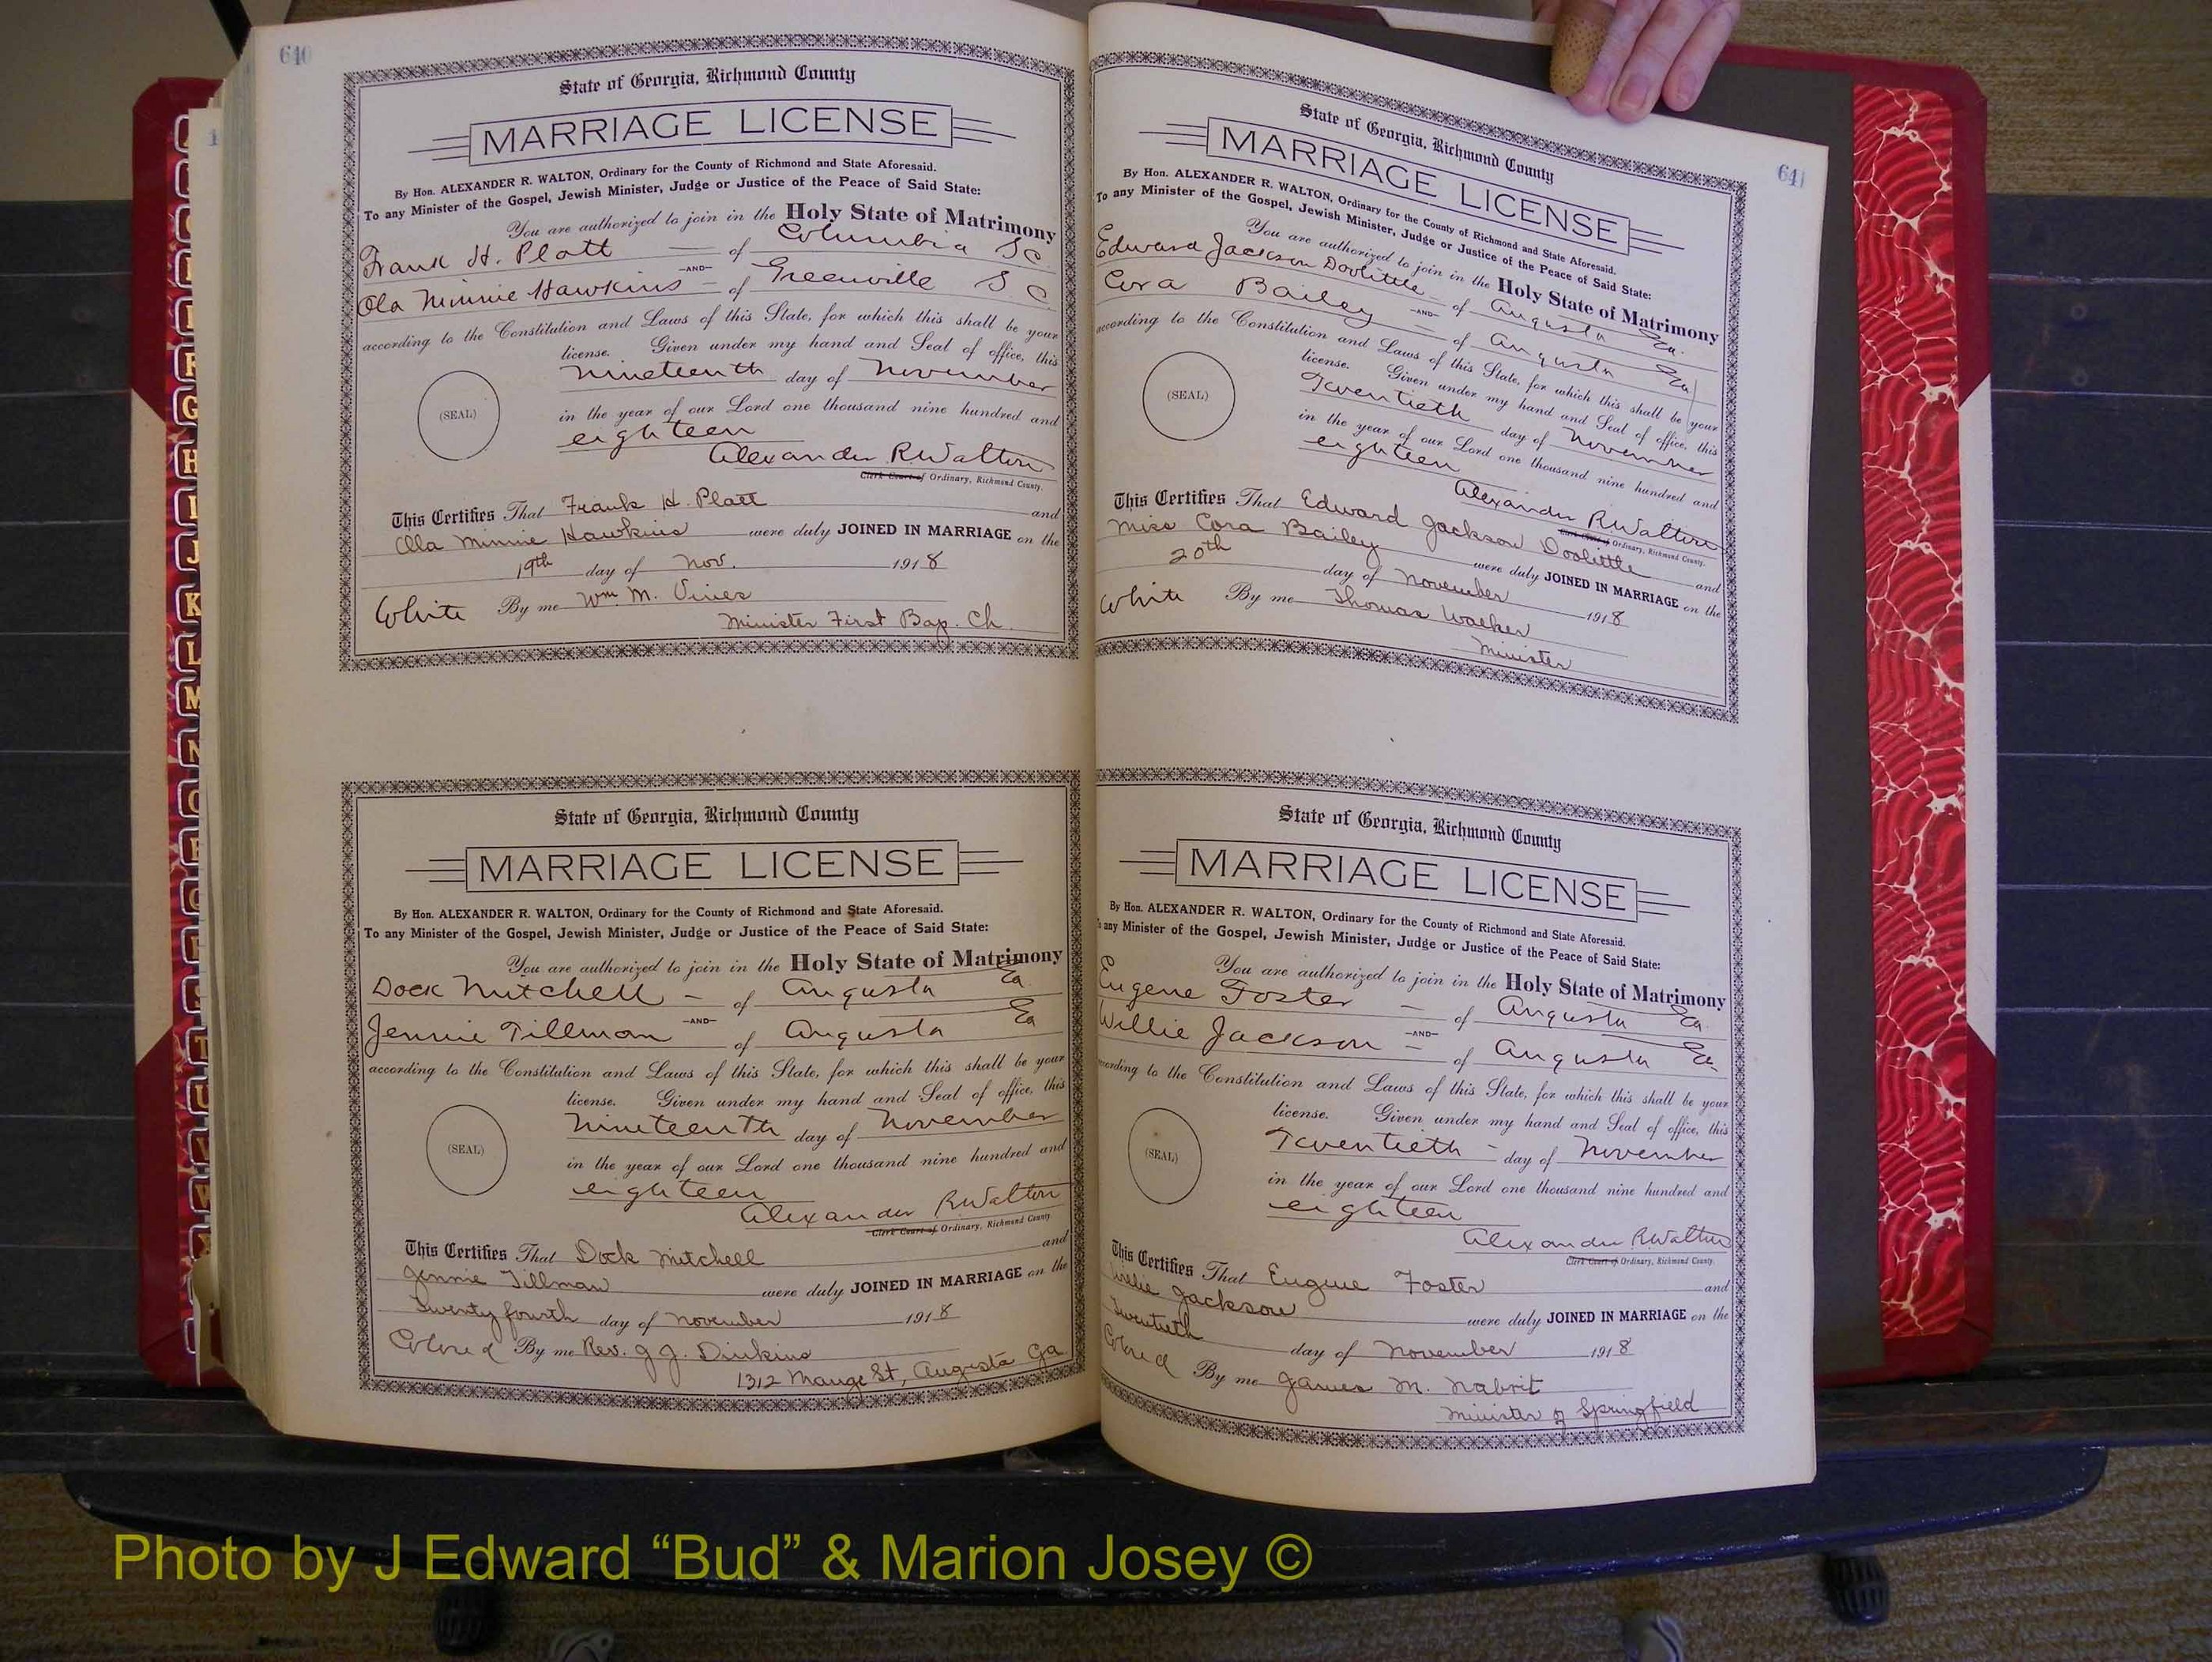 640
State of Georgia, Richmond County
MARRIAGE LICENSE
By Hon. ALEXANDER R. WALTON, Ordinary for the County of Richmond and State Aforesaid.
To any Minister of the Gospel, Jewish Minister, Judge or Justice of the Peace of Said State:
You are authorized to join in the Holy State of Matrimony
Frank H. Platt — of Columbia S C
—AND—
Ola Minnie Hawkins — of Greenville S. C
according to the Constitution and Laws of this State, for which this shall be your
license. Given under my hand and Seal of office, this
nineteenth day of November
(SEAL)
in the year of our Lord one thousand nine hundred and
eighteen
Alexander R Walton
Clerk Court of Ordinary, Richmond County.
This Certifies That Frank H. Platt and
Ola Minnie Hawkins were duly JOINED IN MARRIAGE on the
19th day of Nov. 1918
White By me Wm. M. Vines
Minister First Bap. Ch.
State of Georgia, Richmond County
MARRIAGE LICENSE
By Hon. ALEXANDER R. WALTON, Ordinary for the County of Richmond and State Aforesaid.
To any Minister of the Gospel, Jewish Minister, Judge or Justice of the Peace of Said State:
You are authorized to join in the Holy State of Matrimony
Dock Mitchell — of Augusta Ga
—AND—
Jennie Tillman of Augusta Ga
according to the Constitution and Laws of this State, for which this shall be your
license. Given under my hand and Seal of office, this
nineteenth day of November
(SEAL)
in the year of our Lord one thousand nine hundred and
eighteen
Alexander R Walton
Clerk Court of Ordinary, Richmond County.
This Certifies That Dock Mitchell and
Jennie Tillman were duly JOINED IN MARRIAGE on the
Twenty fourth day of November 1918
Colored By me Rev. G J. Dinkins
1312 St, Augusta Ga
641
State of Georgia, Richmond County
MARRIAGE LICENSE
By Hon. ALEXANDER R. WALTON, Ordinary for the County of Richmond and State Aforesaid.
To any Minister of the Gospel, Jewish Minister, Judge or Justice of the Peace of Said State:
You are authorized to join in the Holy State of Matrimony
Edward Jackson Doolittle — of Augusta Ga.
—AND—
Cora Bailey — of Augusta Ga
according to the Constitution and Laws of this State, for which this shall be your
license. Given under my hand and Seal of office, this
Twentieth day of November
(SEAL)
in the year of our Lord one thousand nine hundred and
eighteen
Alexander R Walton
Clerk Court of Ordinary, Richmond County.
This Certifies That Edward Jackson Doolittle and
Miss Cora Bailey were duly JOINED IN MARRIAGE on the
20th day of November 1918
White By me Thomas Walker
Minister
State of Georgia, Richmond County
MARRIAGE LICENSE
By Hon. ALEXANDER R. WALTON, Ordinary for the County of Richmond and State Aforesaid.
To any Minister of the Gospel, Jewish Minister, Judge or Justice of the Peace of Said State:
You are authorized to join in the Holy State of Matrimony
Eugene Foster — of Augusta Ga.
—AND—
Willie Jackson — of Augusta Ga.
according to the Constitution and Laws of this State, for which this shall be your
license. Given under my hand and Seal of office, this
Twentieth — day of November
(SEAL)
in the year of our Lord one thousand nine hundred and
eighteen
Alexander R Walton
Clerk Court of Ordinary, Richmond County.
This Certifies That Eugene Foster and
Willie Jackson were duly JOINED IN MARRIAGE on the
Twentieth day of November 1918
Colored By me James M. Nabrit
Minister of Springfield
Photo by J Edward “Bud” & Marion Josey ©